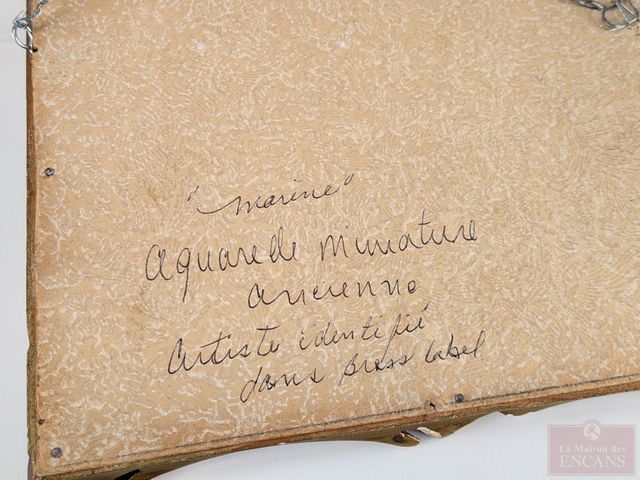 "marine"
Aquarelle miniature
ancienne
Artiste identifié
dans brass label
La Maison des
ENCANS